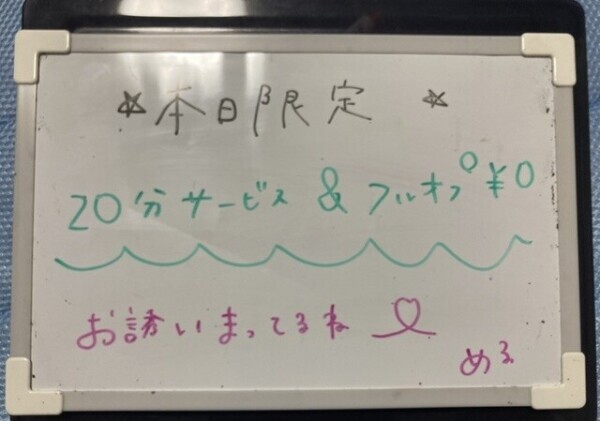 ☆本日限定☆
20分サービス & フルオプ ¥0
お誘いまってるね♡
める